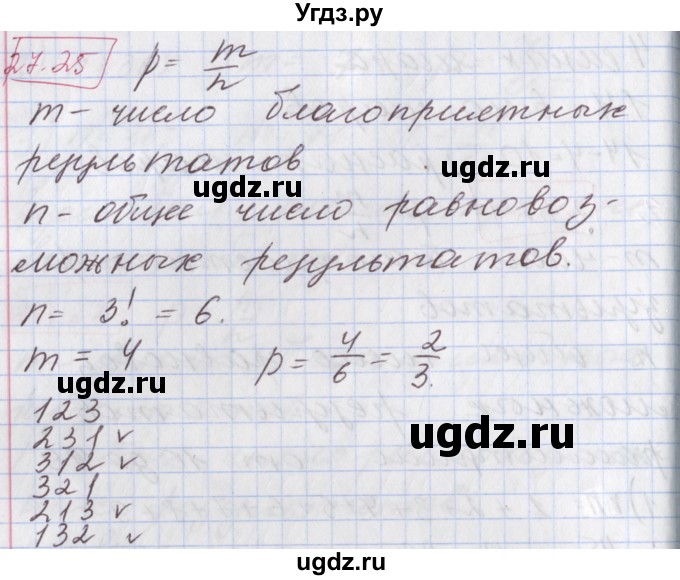 Угдз.ру
27.25 p = m/n
m - число благоприятных
результатов
ugdz.ru ugdz.ru
n - общее число равновоз-
можных результатов.
n = 3! = 6.
m = 4 p = 4/6 = 2/3.
ugdz.ru
123
231 ✓
ugdz.ru
312 ✓
321
213 ✓
132 ✓
ugdz.ru